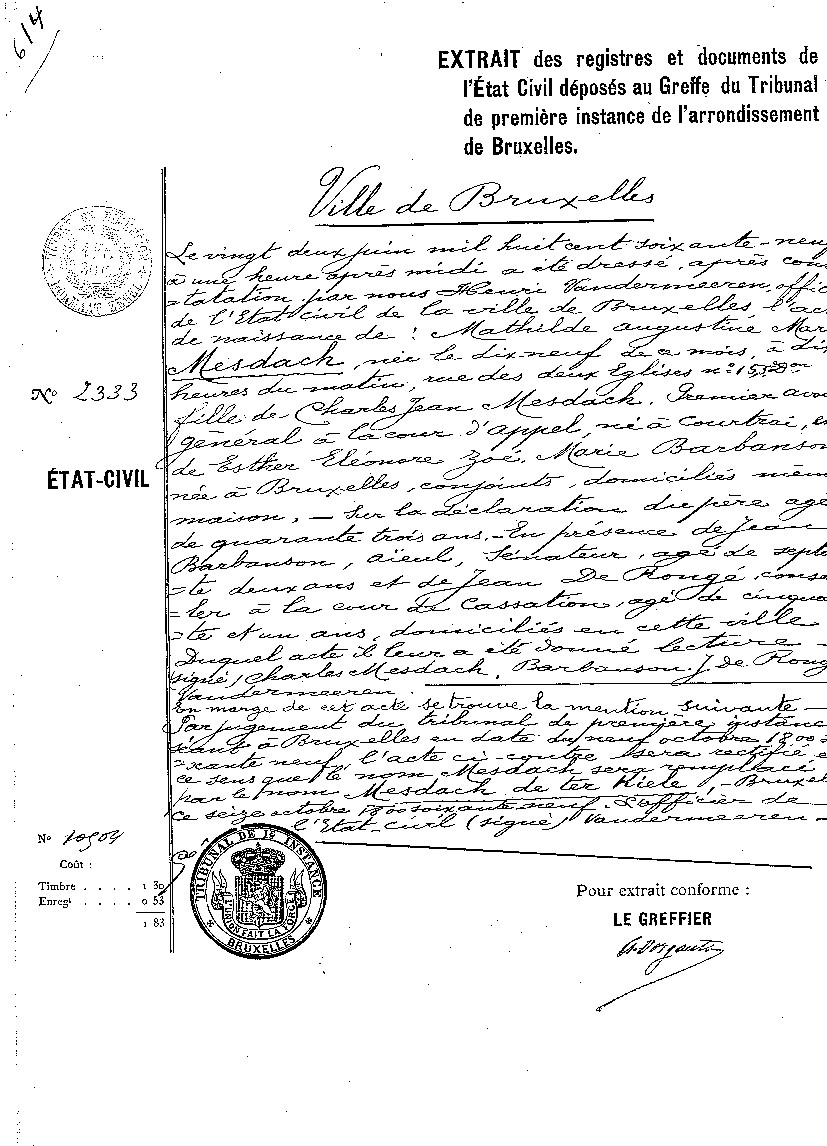 614
EXTRAIT des registres et documents de
l'État Civil déposés au Greffe du Tribunal
de première instance de l'arrondissement
de Bruxelles.
Ville de Bruxelles
Le vingt deux juin mil huit cent soixante-neuf
à une heure après midi a été dressé, après cons
=tatation par nous Henri Vandermeeren, offic
de l'Etat civil de la ville de Bruxelles, l'ac
de naissance de : Mathilde augustine Mar
Mesdach, née le dix neuf de ce mois, à dix
heures du matin, rue des deux Eglises n°
fille de Charles Jean Mesdach. Premier avo
général à la cour d'appel, né à Courtrai, e
de Esther Eléonore Zoé. Marie Barbanson
née à Bruxelles, conjoints, domiciliés mêm
maison. — Sur la déclaration du père agé
de quarante trois ans. – En présence de Jean
Barbanson, aïeul, Sénateur, agé de sept
=te deux ans et de Jean De Rongé, conse
=ler à la cour de Cassation, agé de cinqua
=te et un ans, domiciliés en cette ville
Duquel acte il leur a été donné lecture –
(signé) Charles Mesdach, Barbanson. J. de Rong
Vandermeeren.
En marge de cet acte se trouve la mention suivante –
Par jugement du tribunal de première instanc
séant à Bruxelles en date du neuf octobre 1800 s
=xante neuf, l'acte ci-contre sera rectifié e
ce sens que le nom Mesdach sera remplacé
par le nom Mesdach de ter Kiele, – Bruxel
ce seize octobre 1800 soixante neuf. L'officier de
l'Etat-civil (signé) Vandermeeren –
N° 2333
ÉTAT-CIVIL
N° 10504
Coût :
Timbre . . . . 1 30
Enregt . . . . 0 53
1 83
TRIBUNAL DE 1E INSTANCE
L'UNION FAIT LA FORCE
BRUXELLES
Pour extrait conforme :
LE GREFFIER